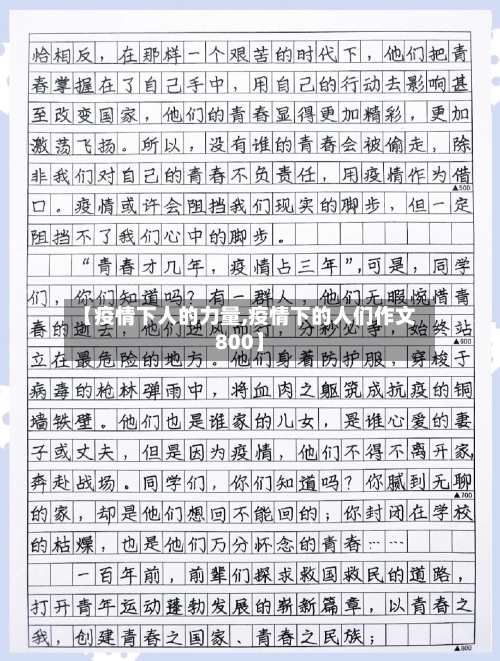 恰相反，在那样一个艰苦的时代下，他们把青
春掌握在了自己手中，用自己的行动去影响甚
至改变国家，他们的青春显得更加精彩，更加
激荡飞扬。所以，没有谁的青春会被偷走，除
非我们对自己的青春不负责任，用疫情作为借
▲500
口。疫情或许会阻挡我们现实的脚步，但一定
阻挡不了我们心中的脚步。
“青春才几年，疫情占三年”，可是，同学
们，你们知道吗？有一群人，他们无暇惋惜青
【疫情下人的力量,疫情下的人们作文
800】
春的逝去，他们逆风而行，分秒必争，始终站
▲600
立在最危险的地方。他们身着防护服，穿梭于
病毒的枪林弹雨中，将血肉之躯筑成抗疫的铜
墙铁壁。他们也是谁家的儿女，是谁心爱的妻
子或丈夫，但是因为疫情，他们不得不离开家，
奔赴战场。同学们，你们知道吗？你腻到无聊
▲700
的家，却是他们想回不能回的；你封闭在学校
的枯燥，也是他们万分怀念的青春……
一百年前，前辈们探求救国救民的道路，
打开青年运动蓬勃发展的崭新篇章，以青春之
我，创建青春之国家、青春之民族；
▲800